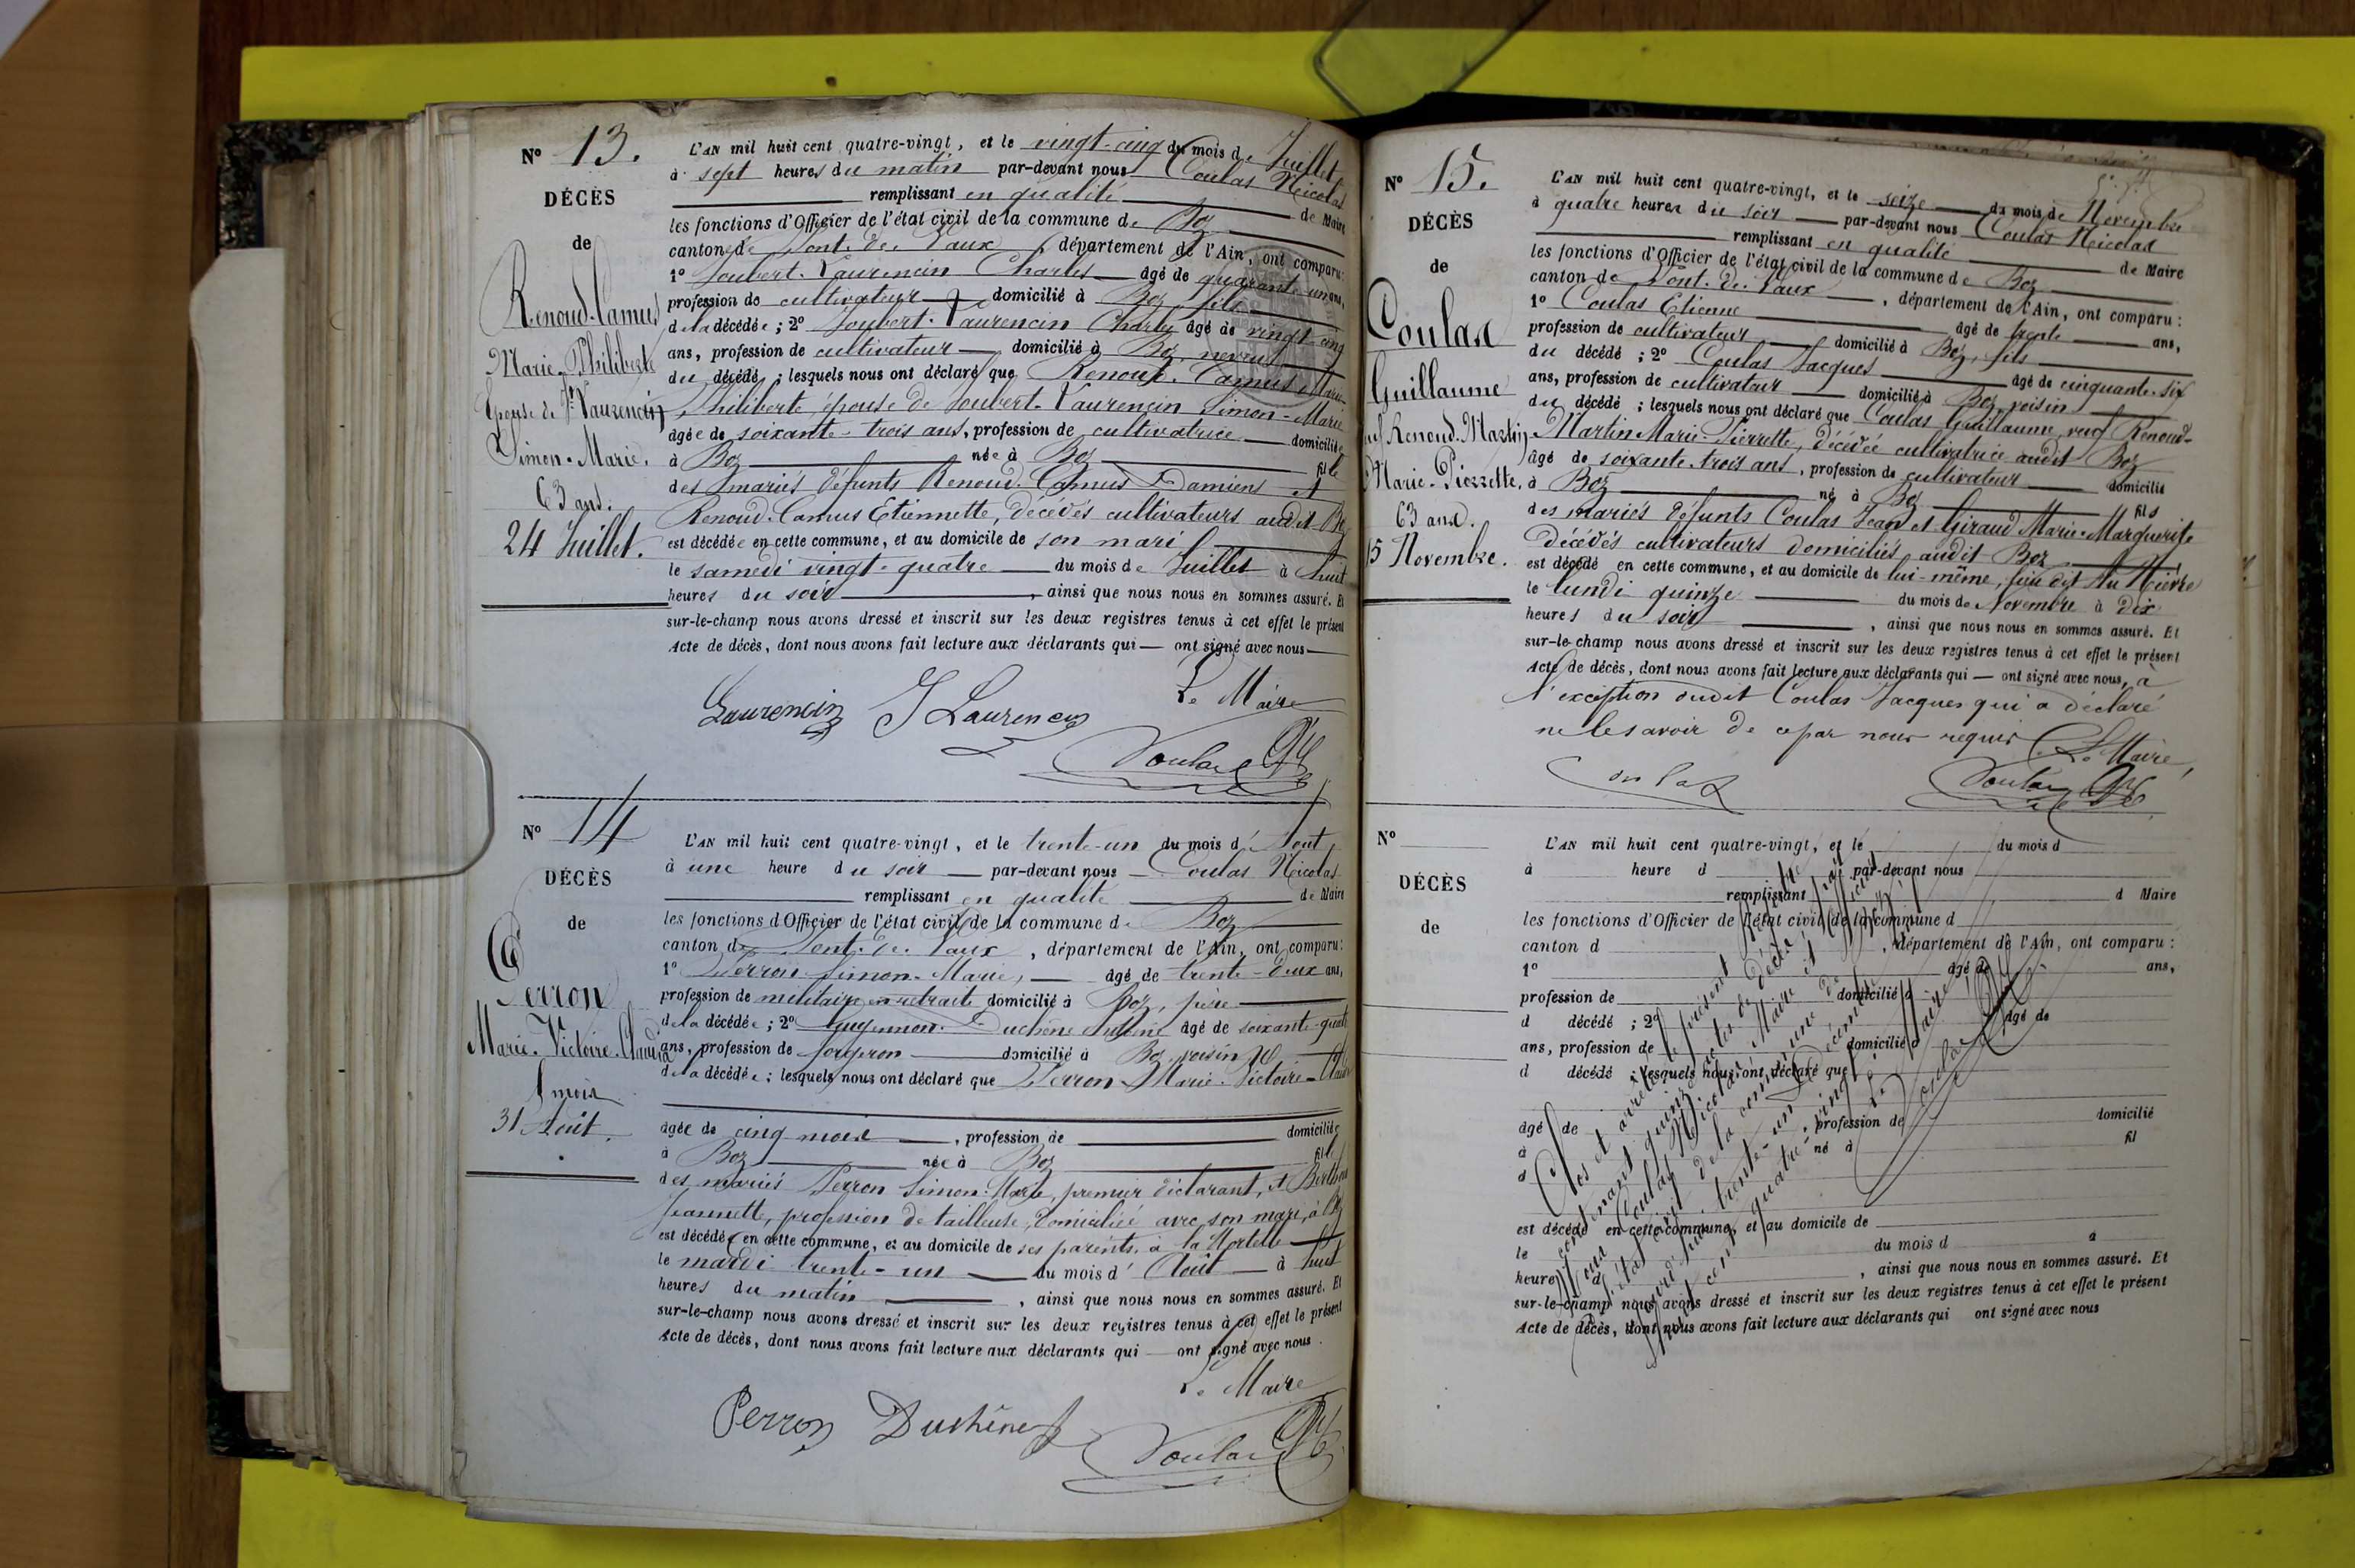 N° 13.
DÉCÈS
de
Renoud-Camus
Marie-Philiberte
Epouse de Jt Laurencin
Simon-Marie.
63 ans.
24 Juillet.
L'AN mil huit cent quatre-vingt, et le vingt-cinq du mois de Juillet
à sept heures du matin par-devant nous Coulas Nicolas
remplissant en qualité de Maire
les fonctions d'Officier de l'état civil de la commune de Boz
canton de Pont-de-Vaux, département de l'Ain, ont comparu :
1° Joubert-Laurencin Charles âgé de quarante-un ans,
profession de cultivateur domicilié à Boz fils
de la décédée ; 2° Joubert-Laurencin Charles âgé de vingt-cinq
ans, profession de cultivateur domicilié à Boz, neveu
du décédé ; lesquels nous ont déclaré que Renoud-Camus Marie-
Philiberte, épouse de Joubert-Laurencin Simon-Marie
âgée de soixante-trois ans, profession de cultivatrice domiciliée
à Boz née à Boz fille
des mariés défunts Renoud-Camus Damiens et
Renoud-Camus Etiennette, décédés cultivateurs audit Boz
est décédée en cette commune, et au domicile de son mari
le samedi vingt-quatre du mois de Juillet à huit
heures du soir, ainsi que nous nous en sommes assuré. Et
sur-le-champ nous avons dressé et inscrit sur les deux registres tenus à cet effet le présent
Acte de décès, dont nous avons fait lecture aux déclarants qui — ont signé avec nous
Le Maire
Laurencin J Laurencin
Coulas
N° 14
DÉCÈS
de
Perron
Marie-Victoire-Claudia
5 mois
31 Août.
L'AN mil huit cent quatre-vingt, et le trente-un du mois d'Aout
à une heure du soir par-devant nous Coulas Nicolas
remplissant en qualité de Maire
les fonctions d'Officier de l'état civil de la commune de Boz
canton de Pont-de-Vaux, département de l'Ain, ont comparu :
1° Perron Simon-Marie, âgé de trente-deux ans,
profession de militaire en retraite domicilié à Boz, père
de la décédée ; 2° Duchêne âgé de soixante-quatre
ans, profession de domicilié à Boz, voisin
de la décédée ; lesquels nous ont déclaré que Perron Marie-Victoire-Claudia
âgée de cinq mois, profession de domiciliée
à Boz née à Boz fille
des mariés Perron Simon-Marie, premier déclarant, et
Jeannette, profession de tailleuse, domiciliée avec son mari, à Boz
est décédée en cette commune, et au domicile de ses parents, à la
le mardi trente-un du mois d'Août à huit
heures du matin, ainsi que nous nous en sommes assuré. Et
sur-le-champ nous avons dressé et inscrit sur les deux registres tenus à cet effet le présent
Acte de décès, dont nous avons fait lecture aux déclarants qui — ont signé avec nous.
Le Maire
Perron Duchêne
Coulas
N° 15.
DÉCÈS
de
Coulas
Guillaume
veuf Renoud-Martin
Marie-Pierrette.
63 ans.
15 Novembre.
L'AN mil huit cent quatre-vingt, et le seize du mois de Novembre
à quatre heures du soir par-devant nous Coulas Nicolas
remplissant en qualité de Maire
les fonctions d'Officier de l'état civil de la commune de Boz
canton de Pont-de-Vaux, département de l'Ain, ont comparu :
1° Coulas Etienne âgé de trente ans,
profession de cultivateur domicilié à Boz, fils
du décédé ; 2° Coulas Jacques âgé de cinquante-six
ans, profession de cultivateur domicilié à Boz, voisin
du décédé ; lesquels nous ont déclaré que Coulas Guillaume, veuf Renoud-
Martin Marie-Pierrette, décédée cultivatrice audit Boz
âgé de soixante-trois ans, profession de cultivateur domicilié
à Boz né à Boz fils
des mariés défunts Coulas Jean et Giraud Marie-Marguerite
décédés cultivateurs domiciliés audit Boz
est décédé en cette commune, et au domicile de lui-même,
le lundi quinze du mois de Novembre à dix
heures du soir, ainsi que nous nous en sommes assuré. Et
sur-le-champ nous avons dressé et inscrit sur les deux registres tenus à cet effet le présent
Acte de décès, dont nous avons fait lecture aux déclarants qui — ont signé avec nous, à
l'exception dudit Coulas Jacques qui a déclaré
ne le savoir de ce par nous requis Le Maire,
Coulas Coulas
N°
DÉCÈS
de
L'AN mil huit cent quatre-vingt, et le du mois d
à heure d par-devant nous
remplissant d Maire
les fonctions d'Officier de l'état civil de la commune d
canton d , département de l'Ain, ont comparu :
1° âgé de ans,
profession de domicilié à
d décédé ; 2° âgé de
ans, profession de domicilié à
d décédé ; lesquels nous ont déclaré que
âgé de , profession de domicilié
à né à fil
d
est décédé en cette commune, et au domicile de
le du mois d à
heure d , ainsi que nous nous en sommes assuré. Et
sur-le-champ nous avons dressé et inscrit sur les deux registres tenus à cet effet le présent
Acte de décès, dont nous avons fait lecture aux déclarants qui ont signé avec nous
Clos et arrêté le présent
contenant quinze actes de décès
Coulas Nicolas Maire et
de la commune de
trente-un décembre
quatre-vingt
Le Maire
Coulas